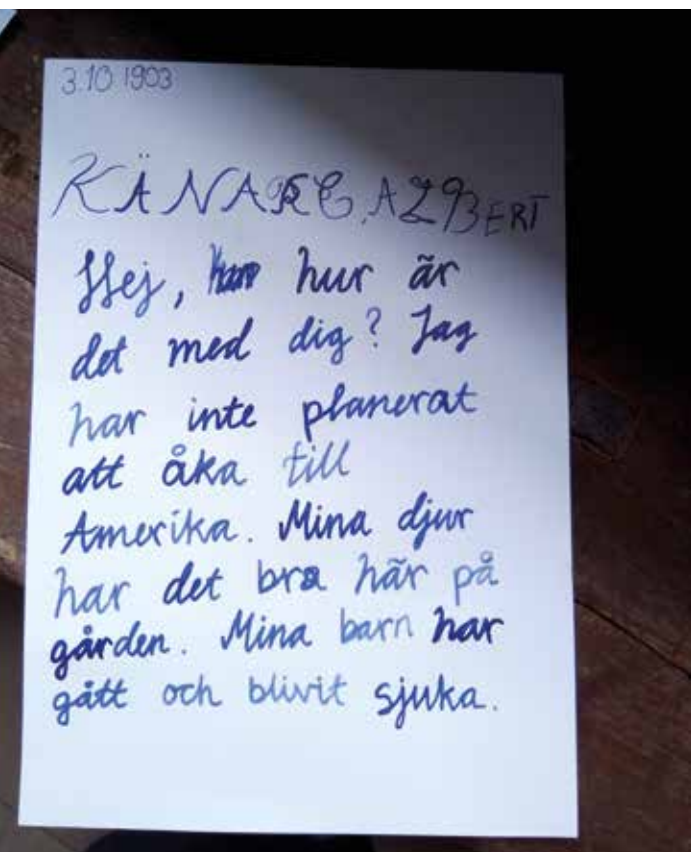 3.10.1903
ALBERT
Hej, hur är
det med dig? Jag
har inte planerat
att åka till
Amerika. Mina djur
har det bra här på
gården. Mina barn har
gått och blivit sjuka.